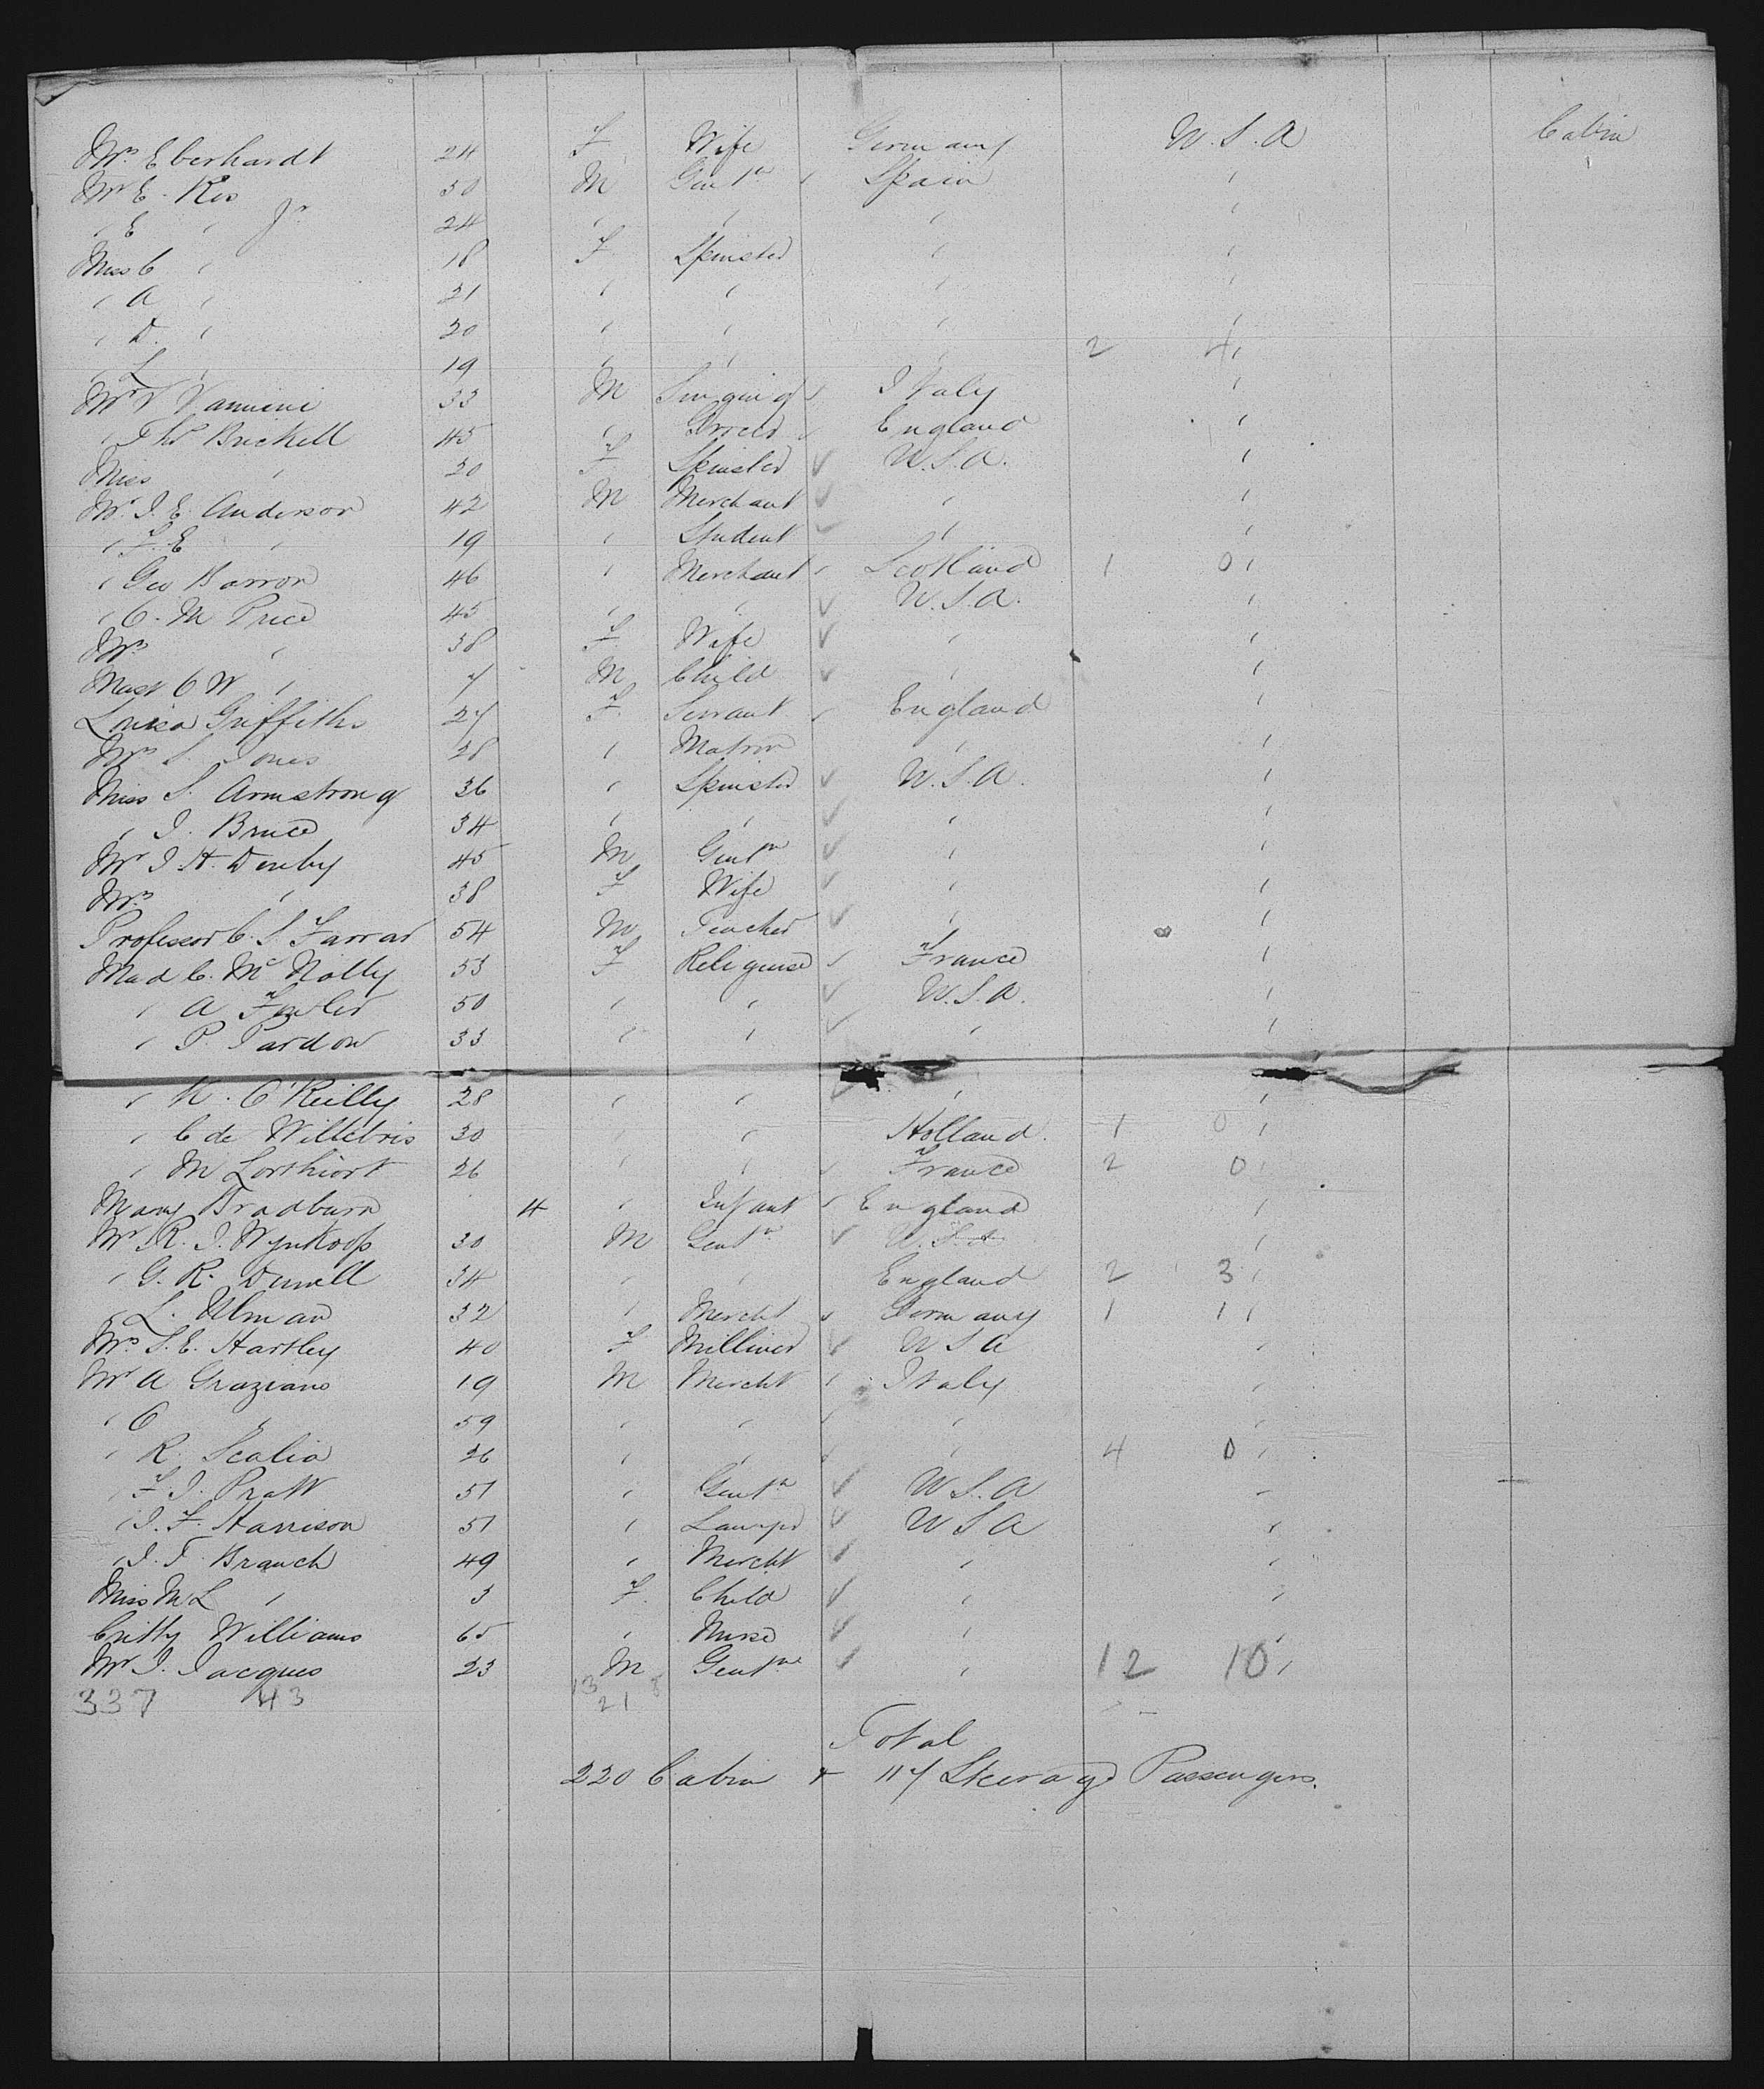 Mrs Eberhardt 24 F Wife Germany U.S.A Cabin
Mr E. Ris 50 M Gentn Spain "
" E " Jr 24 " " " "
Miss C " 18 F Spinster " "
" A " 21 " " " "
" D. " 20 " " " "
" L " 19 " " " 2 4 "
Mr V Vannini 33 M Singing Italy "
" Thos Brickell 45 " England "
Miss " 20 F Spinster U.S.A. "
Mr. J. E. Anderson 42 M Merchant " "
" F. E " 19 " Student " "
" Geo Barron 46 " Merchant Scotland 1 0 "
" C. M Price 45 " " U.S.A. "
Mrs " 38 F Wife " "
Mast C W " 7 M Child " "
Louisa Griffiths 27 F Servant England "
Mrs S. Jones 28 " Matron " "
Miss S. Armstrong 36 " Spinster U.S.A. "
" J. Bruce 34 " " " "
Mr J. H. Denby 45 M Gentn " "
Mrs " 38 F Wife " "
Professor C. S. Farrar 54 M Teacher " "
Mad C. Mc Nally 53 F Religeuse France "
" A Fowler 50 " " U.S.A. "
" P. Pardow 33 " " " "
" K. O'Reilly 28 " " " "
" C de Willebris 30 " " Holland. 1 0 "
" M Lorthiort 26 " " France 2 0 "
Mary Bradburn 4 " Infant England "
Mr R. J. Wynkoop 30 M Gentn U.S.A "
" G. R. Durrell 34 " " England 2 3 "
" L. Ulman 32 " Mercht Germany 1 1 "
Mrs S. E. Hartley 40 F Milliner U S A "
Mr A Graziano 19 M Mercht Italy "
" C " 59 " " " "
" R. Scalia 26 " " " 4 0 "
" F. J. Pratt 51 " Gentn U S. A "
" J. F. Harrison 51 " Lawyer U S A "
" J. T. Branch 49 " Mercht " "
Miss M L " 3 F. Child " "
Critty Williams 65 " Nurse " "
Mr J. Jacques 23 M Gentn " 12 10 "
337 43 13 8
21
Total
220 Cabin + 117 Steerage Passengers.